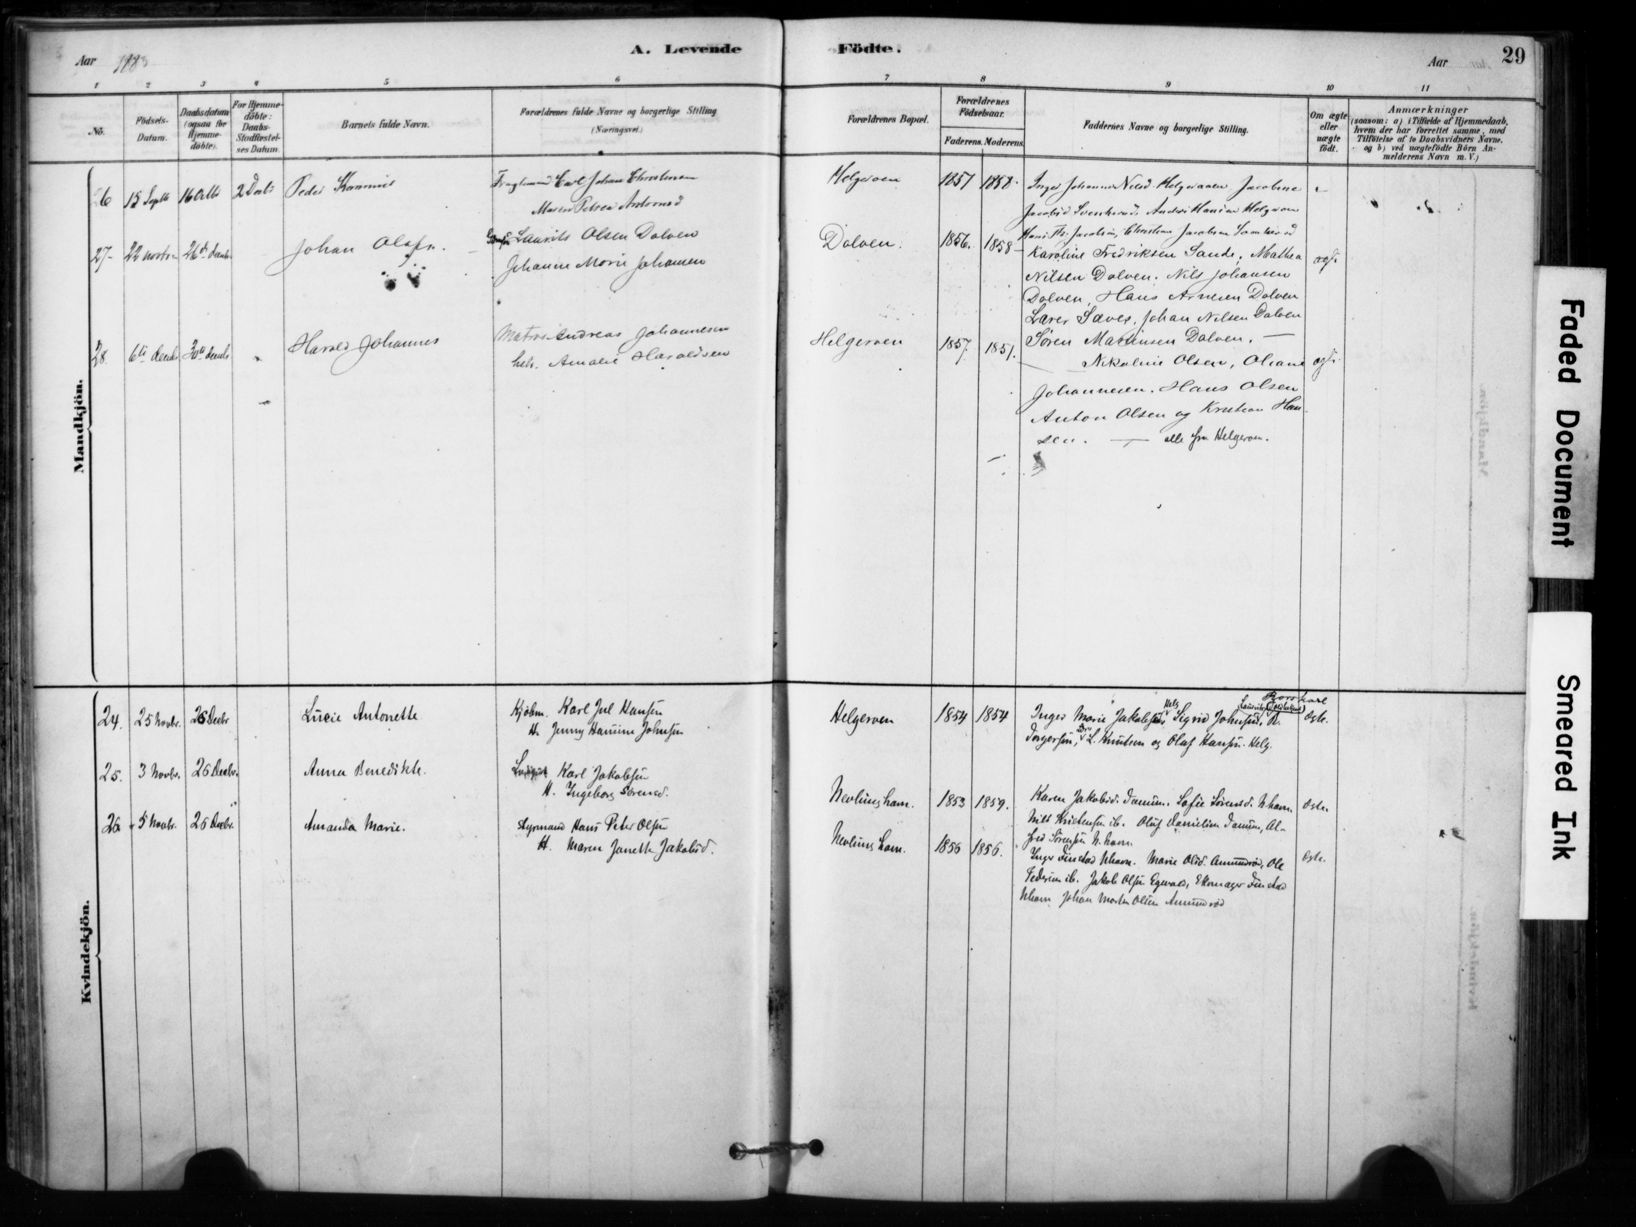 Aar 1883
A. Levende
Födte.
Aar
29
1 2 3 4 5 6 7 8 9 10 11
No.
Födsels-
Datum.
Daabsdatum
(ogsaa for
Hjemme-
døbte).
For Hjemme-
døbte:
Daabs-
Stadfæstel-
ses Datum.
Barnets fulde Navn.
Forældrenes fulde Navne og borgerlige Stilling
(Næringsvei)
Forældrenes Bopæl.
Forældrenes
Födselsaar.
Faderens. Moderens.
Faddernes Navne og borgerlige Stilling.
Om ægte
eller
uægte
födt.
Anmærkninger
(saasom: a) i Tilfælde af Hjemmedaab,
hvem der har forrettet samme, med
Tilföielse af to Daabsvidners Navne,
og b) ved uægtefödte Börn An-
melderens Navn m. V.)
Mandkjön.
26 15 Septb 16 Octb 2 Decb Peder
Carl Johan Christensen
Maren Petrea
Helgeroen 1857 1858
Inger Johanne Nilsd Helgeroen Jacobine
Jacobsd Anders Hansen Helgeroen
Jacobsen, Christian Jacobsen
27 22 novbr 26de decb Johan Olaf
Laurits Olsen Dolven
Johanne Marie Johansen
Dolven. 1856. 1858
Karoline Fredriksen Sande, Mathea
Nilsen Dolven. Nils Johansen
Dolven, Hans Arnesen Dolven
Lærer Sæves, Johan Nilsen Dolven
Søren Mathisen Dolven.
28. 6te decb 30te decb Harald Johannes
Matros Andreas Johannesen
hstr. Amalie Haraldsen
Helgeroen 1857. 1851.
Nikoline Olsen, Oliane
Johannesen. Hans Olsen
Anton Olsen og Kristian Han
sen. — alle fra Helgeroen.
Kvindekjön.
24. 25 Novbr. 26 Decbr Lucie Antonette
Kjøbm. Karl Jul Hansen
H. Jenny Hanine Johnsen
Helgeroen 1854 1854
Inger Marie Jakobsen, Sigrid Johnsen,
Torgersen, L. Knutsen og Olaf Hansen. Helg.
ægte.
25. 3 Novbr. 26 Decbr. Anna Benedikte.
Karl Jakobsen
H. Ingeborg Sørensd.
Nevlungham. 1853 1859.
Karen Jakobsd. Sofie Sørensd. Nhavn.
Nils Kristensen ib. Oluf Danielsen Al-
fred Sørensen N.havn.
ægte.
26 5 Novbr. 26 Decbr. Amanda Marie.
Styrmand Hans Peter Olsen
H. Maren Janette Jakobsd.
Nevlungham. 1856 1856.
Inger Nhavn. Marie Olsd. Amundrød, Ole
Pedersen ib. Jakob Olsen
Nhavn Johan Martin Olsen Amundrød
ægte.
Faded Document
Smeared Ink